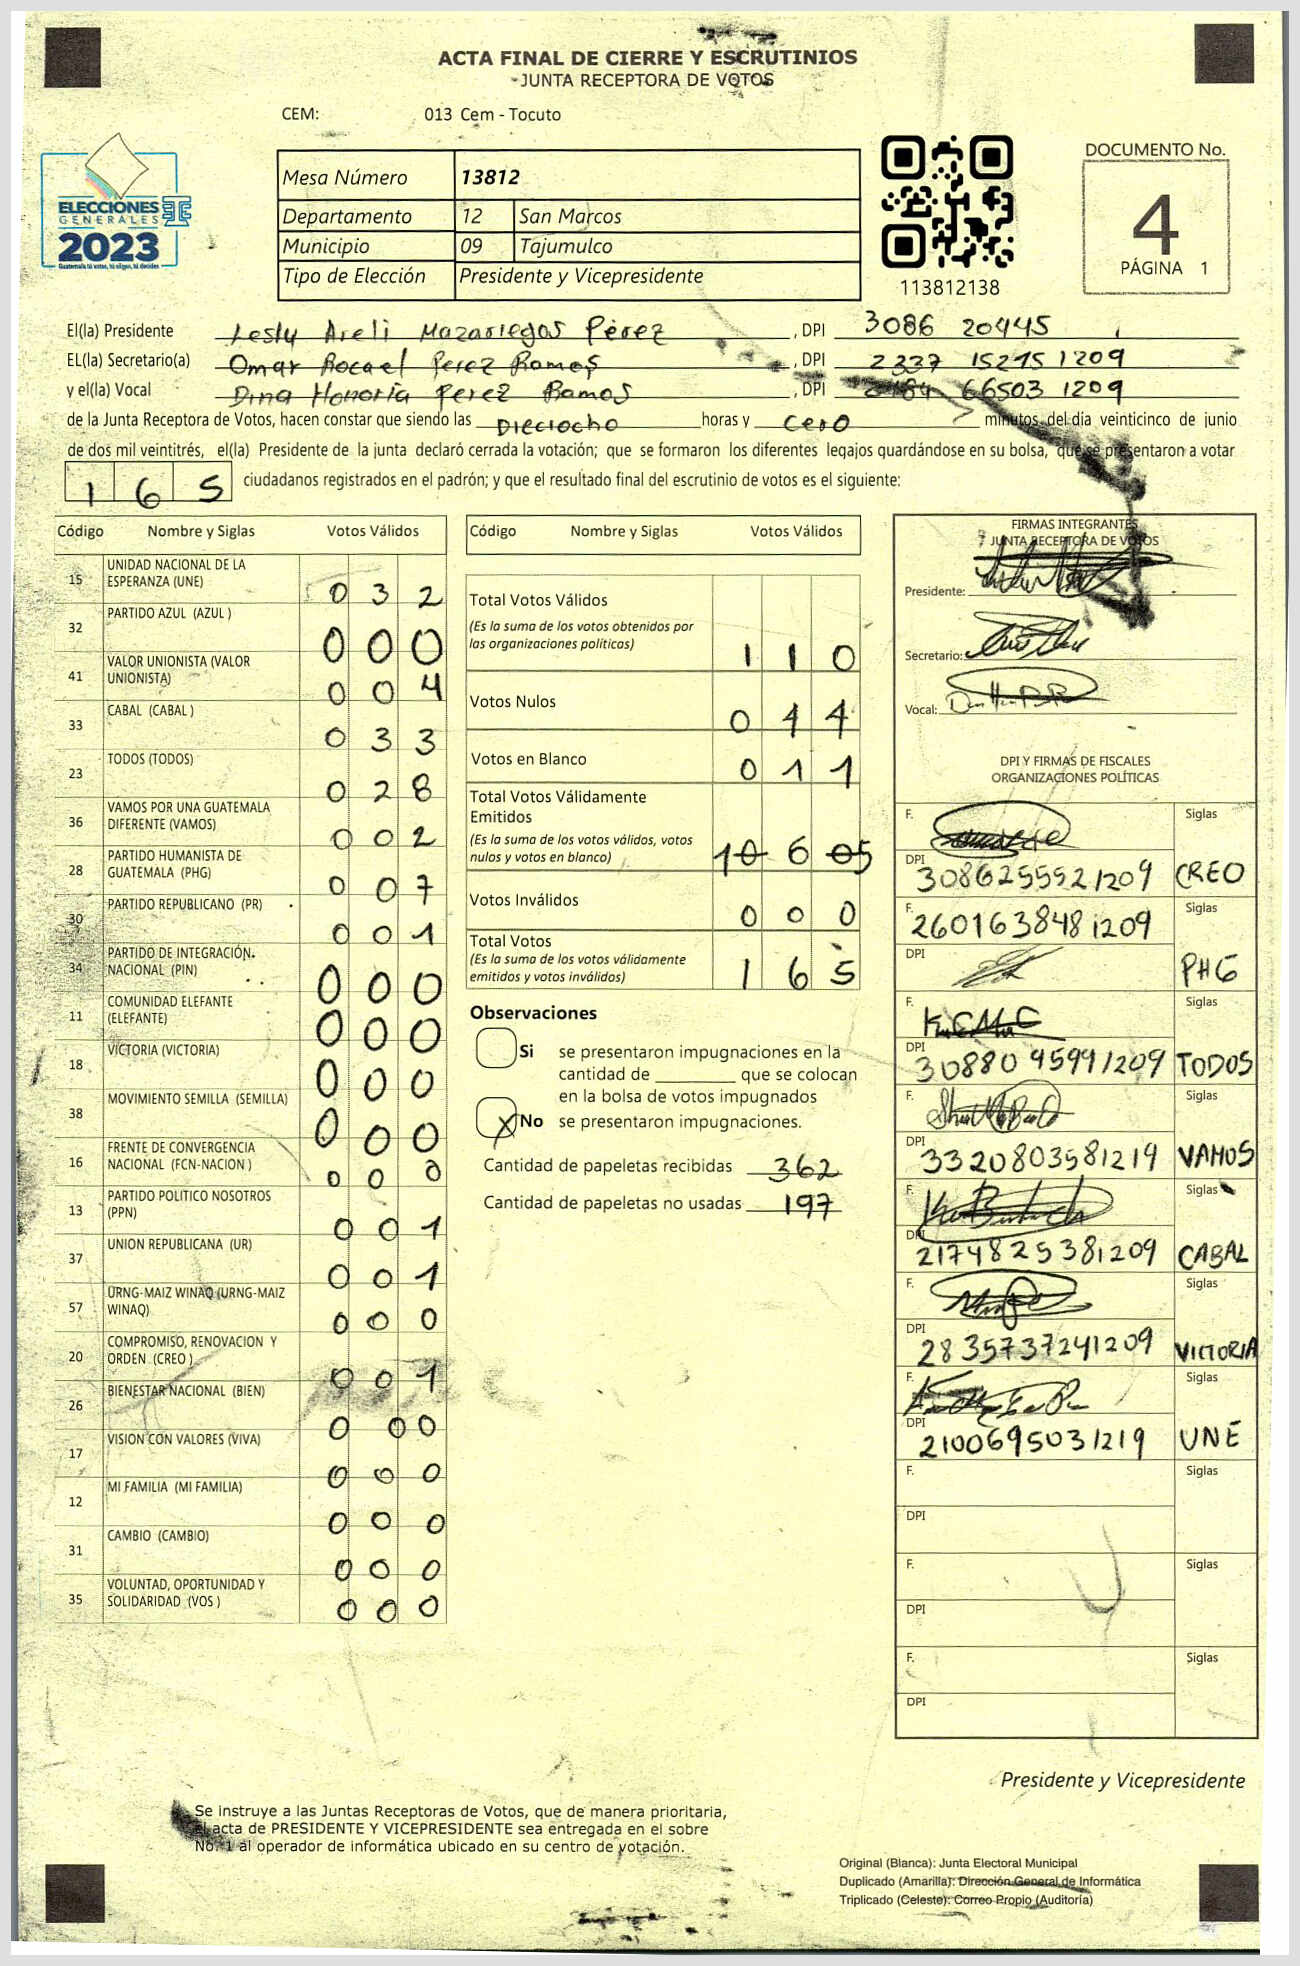 ACTA FINAL DE CIERRE Y ESCRUTINIOS
JUNTA RECEPTORA DE VOTOS
CEM: 013 Cem - Tocuto
ELECCIONES
GENERALES
2023
Guatemala tú votas, tú eliges, tú decides
Mesa Número 13812
Departamento 12 San Marcos
Municipio 09 Tajumulco
Tipo de Elección Presidente y Vicepresidente
113812138
DOCUMENTO No.
4
PÁGINA 1
El(la) Presidente Lesly Areli Mazariegos Pérez , DPI 3086 20445
EL(la) Secretario(a) Omar Rocael Perez Ramos , DPI 2337 15275 1209
y el(la) Vocal Dina Honoria Perez Ramos , DPI 66503 1209
de la Junta Receptora de Votos, hacen constar que siendo las Dieciocho horas y cero minutos del día veinticinco de junio
de dos mil veintitrés, el(la) Presidente de la junta declaró cerrada la votación; que se formaron los diferentes legajos guardándose en su bolsa, que se presentaron a votar
1 6 5 ciudadanos registrados en el padrón; y que el resultado final del escrutinio de votos es el siguiente:
Código Nombre y Siglas Votos Válidos
15 UNIDAD NACIONAL DE LA ESPERANZA (UNE) 0 3 2
32 PARTIDO AZUL (AZUL ) 0 0 0
41 VALOR UNIONISTA (VALOR UNIONISTA) 0 0 4
33 CABAL (CABAL ) 0 3 3
23 TODOS (TODOS) 0 2 8
36 VAMOS POR UNA GUATEMALA DIFERENTE (VAMOS) 0 0 2
28 PARTIDO HUMANISTA DE GUATEMALA (PHG) 0 0 7
30 PARTIDO REPUBLICANO (PR) 0 0 1
34 PARTIDO DE INTEGRACIÓN NACIONAL (PIN) 0 0 0
11 COMUNIDAD ELEFANTE (ELEFANTE) 0 0 0
18 VICTORIA (VICTORIA) 0 0 0
38 MOVIMIENTO SEMILLA (SEMILLA) 0 0 0
16 FRENTE DE CONVERGENCIA NACIONAL (FCN-NACION ) 0 0 0
13 PARTIDO POLITICO NOSOTROS (PPN) 0 0 1
37 UNION REPUBLICANA (UR) 0 0 1
57 URNG-MAIZ WINAQ (URNG-MAIZ WINAQ) 0 0 0
20 COMPROMISO, RENOVACION Y ORDEN (CREO ) 0 0 1
26 BIENESTAR NACIONAL (BIEN) 0 0 0
17 VISION CON VALORES (VIVA) 0 0 0
12 MI FAMILIA (MI FAMILIA) 0 0 0
31 CAMBIO (CAMBIO) 0 0 0
35 VOLUNTAD, OPORTUNIDAD Y SOLIDARIDAD (VOS ) 0 0 0
Código Nombre y Siglas Votos Válidos
Total Votos Válidos
(Es la suma de los votos obtenidos por
las organizaciones políticas) 1 1 0
Votos Nulos 0 4 4
Votos en Blanco 0 1 1
Total Votos Válidamente
Emitidos
(Es la suma de los votos válidos, votos
nulos y votos en blanco) 1 6 5
Votos Inválidos 0 0 0
Total Votos
(Es la suma de los votos válidamente
emitidos y votos inválidos) 1 6 5
Observaciones
Si se presentaron impugnaciones en la
cantidad de ________ que se colocan
en la bolsa de votos impugnados
X No se presentaron impugnaciones.
Cantidad de papeletas recibidas 362
Cantidad de papeletas no usadas 197
FIRMAS INTEGRANTES
JUNTA RECEPTORA DE VOTOS
Presidente:
Secretario:
Vocal:
DPI Y FIRMAS DE FISCALES
ORGANIZACIONES POLÍTICAS
F. Siglas
DPI 3086255521209 CREO
F. 2601638481209 Siglas
DPI PHG
F. Siglas
DPI 3088045991209 TODOS
F. Siglas
DPI 3320803581219 VAMOS
F. Siglas
DPI 2174825381209 CABAL
F. Siglas
DPI 2835737241209 VICTORIA
F. Siglas
DPI 2100695031219 UNE
F. Siglas
DPI
F. Siglas
DPI
F. Siglas
DPI
Presidente y Vicepresidente
Se instruye a las Juntas Receptoras de Votos, que de manera prioritaria,
el acta de PRESIDENTE Y VICEPRESIDENTE sea entregada en el sobre
No. 1 al operador de informática ubicado en su centro de votación.
Original (Blanca): Junta Electoral Municipal
Duplicado (Amarilla): Dirección General de Informática
Triplicado (Celeste): Correo Propio (Auditoría)